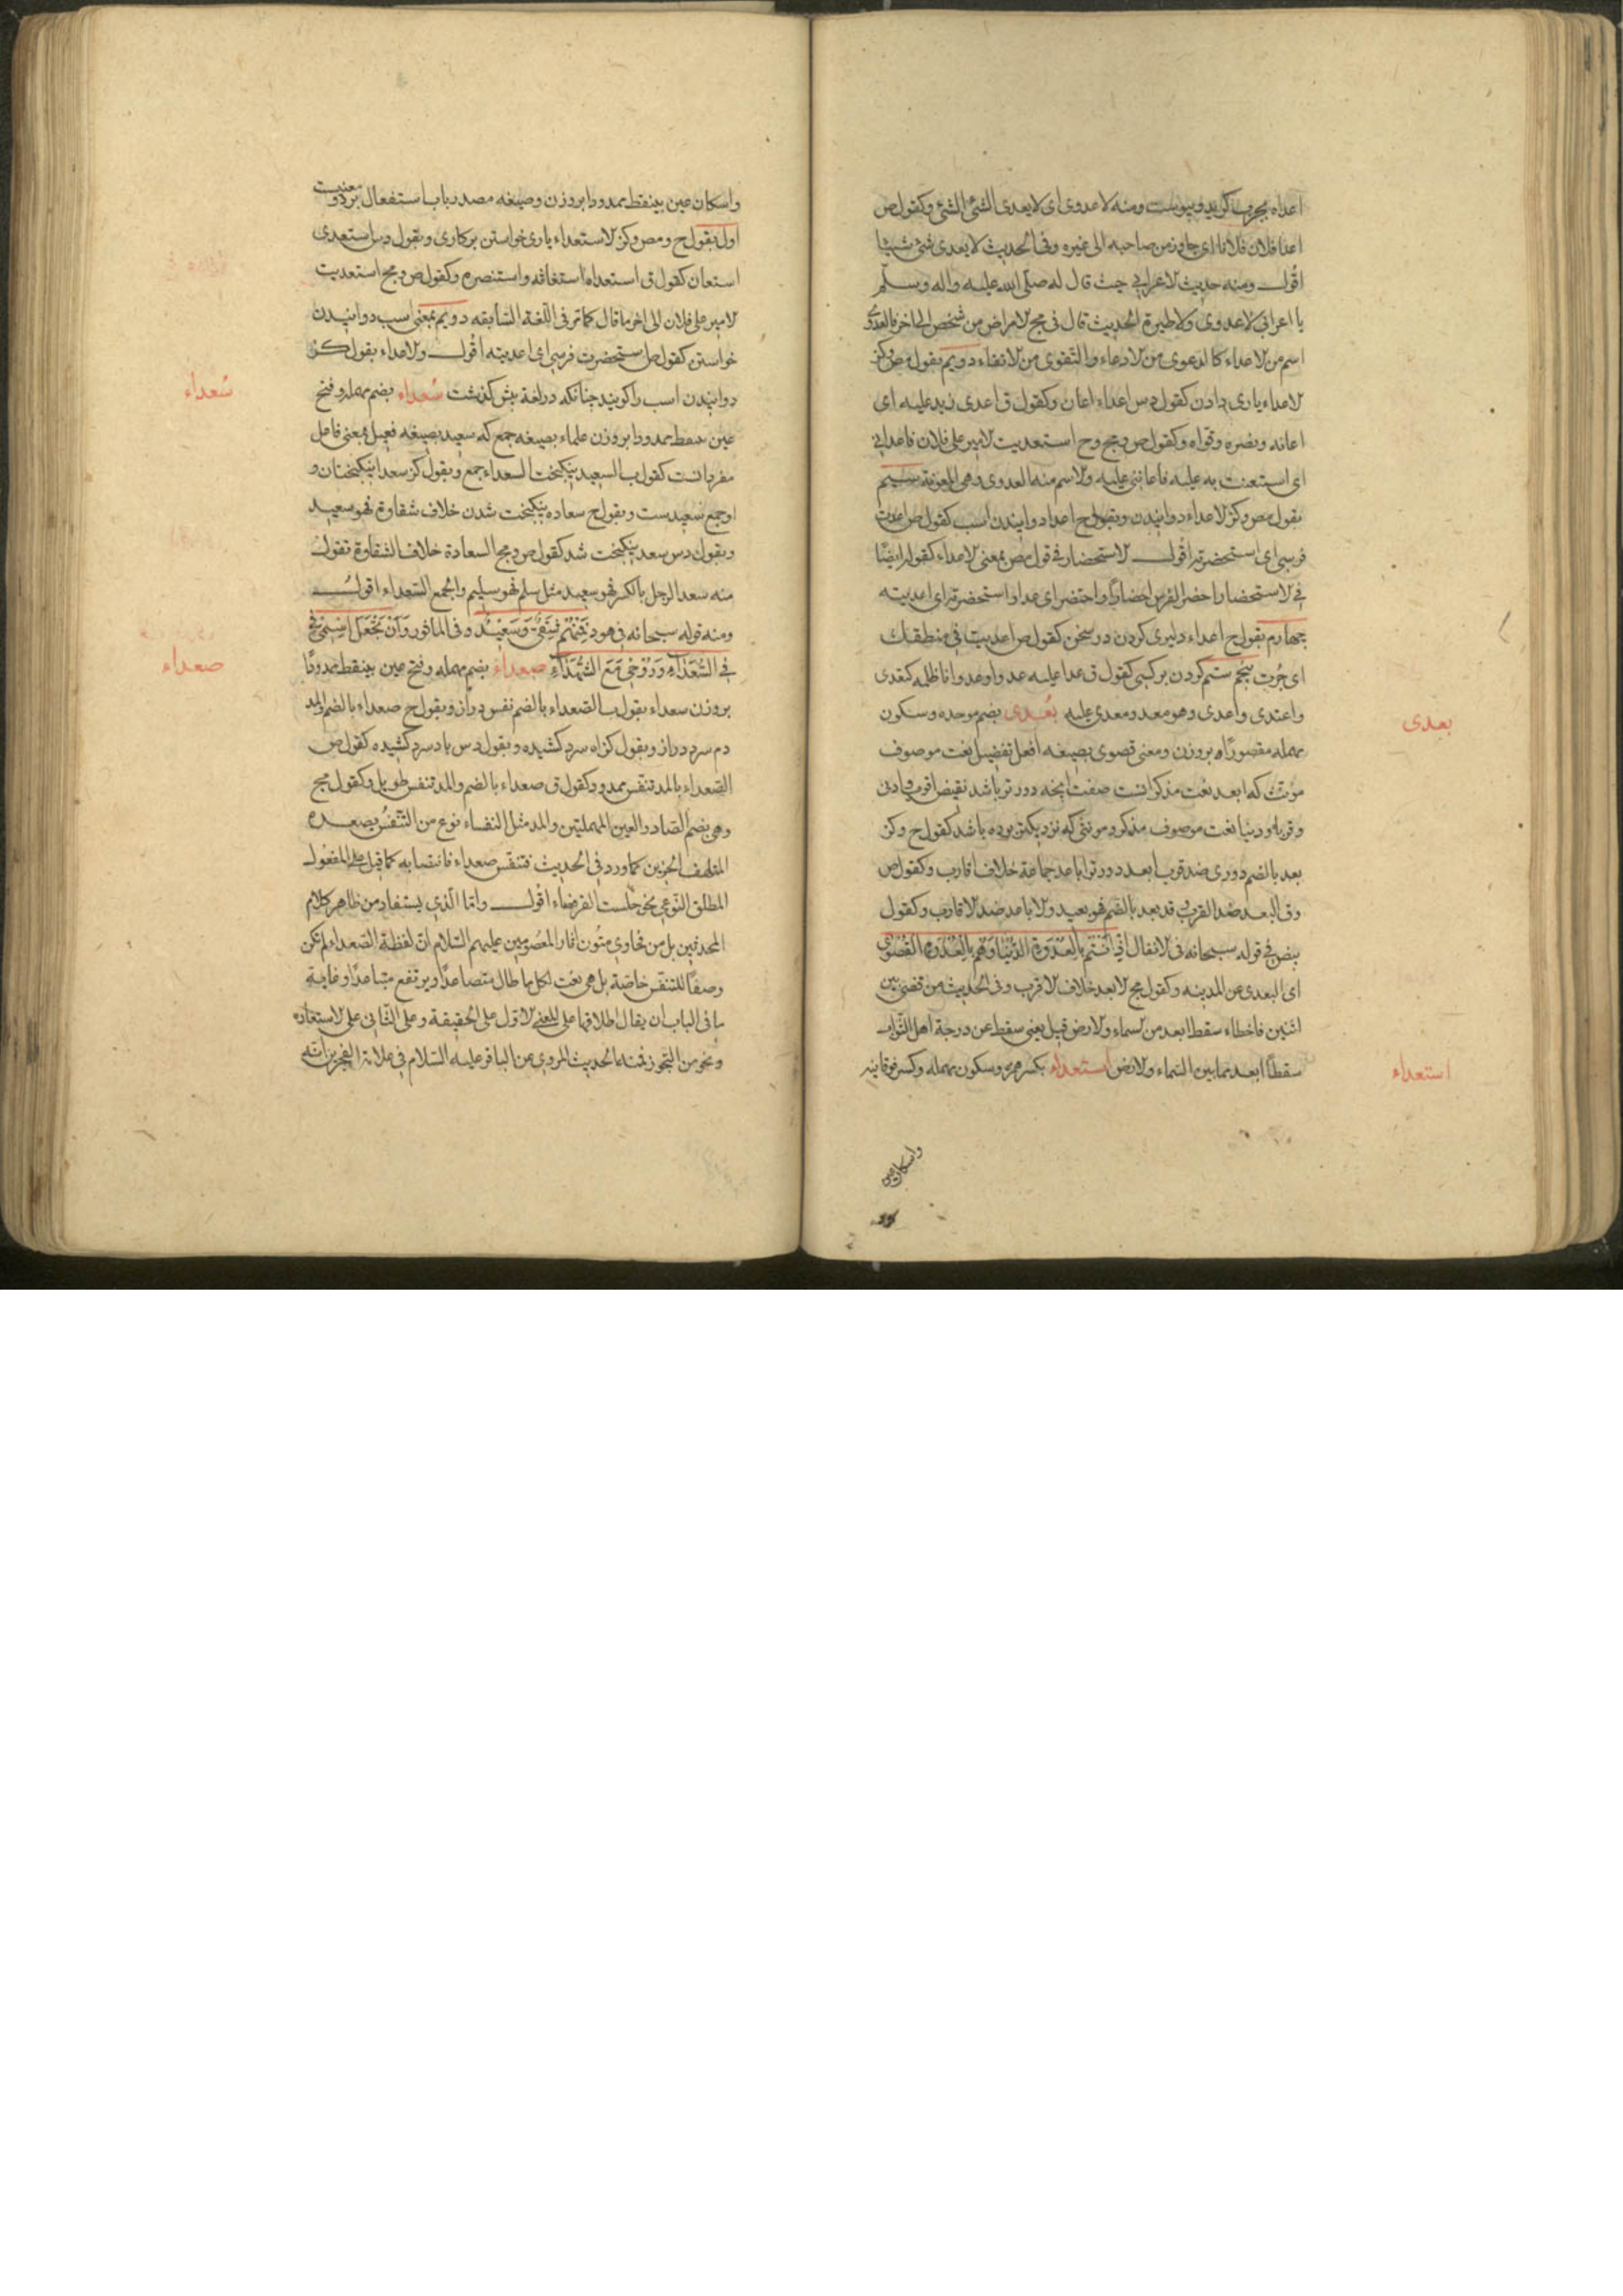 اعداه بجرب كويند وبيوست ومنه لا عدوى اى لا يعدى الشئ الشئ وكقول ص
اعدا فلان فلانا اى جاوز من صاحبه الى غيره وفى الحديث لا يعدى شئ شيئا
اقول ومنه حديث الاعرابى حيث قال له صلى الله عليه واله وسلم
يا اعرابى لا عدوى ولا طيرة الحديث قال فى مج الامراض من شخص الى اخر فالعدوى
اسم من الاعداء كالدعوى من الادعاء والتقوى من الاتقاء دويم بقول مص وكز
الاعداء يارى دادن كقول دس اعداء اعان وكقول ق اعدى زيد عليه اى
اعانه ونصره وقواه وكقول ص ومج وح استعديت الامير على فلان فاعدانى
اى استعنت به عليه فاعاننى عليه والاسم منه العدوى وهى المعونة سيم
بقول مص وكز الاعداء دوانيدن وبقول ح اعداد دوانيدن اسب كقول ص اعديت
فرسى اى استحضرته اقول الاستحضار فى قول مص بمعنى الاعداء كقوله ايضا
فى الاستحضار احضر الفرس احضارا واحتضر اى عدا واستحضرته اى اعديته
جهارم بقول ح اعداء دليرى كردن در سخن كقول ص اعديت فى منطقك
اى جرت پنجم ستم كردن بر كسى كقول ق عدا عليه عدوا وعدوانا ظلمه كتعدى
واعتدى واعدى وهو معد ومعدى عليه بعدى بضم موحده وسكون
مهمله مقصورا بر وزن ومعنى قصوى بصيغه افعل تفضيل نعت موصوف
مونث كه ابعد نعت مذكر انست صفت انچه دورتر باشد نقيض اقرب وادنى
وقربى ودنيا نعت موصوف مذكر ومونثى كه نزديكتر بوده باشد كقول ح وكز
بعد بالضم دورى ضد قرب ابعد دورتر اباعد جماعة خلاف اقارب وكقول ص
وق البعد ضد القرب وقد بعد بالضم فهو بعيد والاباعد ضد الاقارب وكقول
بيض فى قوله سبحانه فى الانفال اذ انتم بالعدوة الدنيا وهم بالعدوة القصوى
اى البعدى عن المدينه وكقول مج الابعد خلاف الاقرب وفى الحديث من قضى بين
اثنين فاخطاء سقط ابعد من السماء والارض قيل يعنى سقط عن درجة اهل الثواب
سقطا ابعد مما بين السماء والارض استعداء بكسر همزه وسكون مهمله وكسر فوقانيه
بعدى
استعداء
واسكان عين
واسكان عين بينقط ممدودا بر وزن وصيغه مصدر باب استفعال بر دو معنيست
اول بقول ح ومص وكز الاستعداء يارى خواستن بر كارى وبقول دس استعدى
استعان كقول ق استعداه استغاثه واستنصره وكقول ص ومج استعديت
الامير على فلان الى اخر ما قال كما مر فى اللغة السابقه دويم بمعنى اسب دوانيدن
خواستن كقول ص استحضرت فرسى اى اعديته اقول والاعداء بقول كز
دوانيدن اسب را كويند چنانكه در لغة بيش كذشت سعداء بضم مهمله وفتح
عين بينقط ممدودا بر وزن علماء بصيغه جمع كه سعيد بصيغه فعيل بمعنى فاعل
مفرد انست كقول ب السعيد نيكبخت السعداء جمع وبقول كز سعدا نيكبختان و
او جمع سعيد ست وبقول ح سعاده نيكبخت شدن خلاف شقاوة فهو سعيد
وبقول دس سعد نيكبخت شد كقول ص ومج السعادة خلاف الشقاوة تقول
منه سعد الرجل بالكسر فهو سعيد مثل سلم فهو سليم والجمع السعداء اقول
ومنه قوله سبحانه فى هود فمنهم شقى وسعيد وفى الماثور وان تجعل اسمى فى
فى السعداء وروحى مع الشهداء صعداء بضم مهمله وفتح عين بينقط ممدودا
بر وزن سعداء بقول ب الصعداء بالضم نفس دراز وبقول ح صعداء بالضم والمد
دم سرد دراز وبقول كز اه سرد كشيده وبقول دس باد سرد كشيده كقول ص
الصعداء بالمد تنفس ممدود وكقول ق صعداء بالضم والمد تنفس طويل وكقول مج
وهى بضم الصاد والعين المهملتين والمد مثل النفساء نوع من التنفس يصعده
المتلهف الحزين كما ورد فى الحديث فتنفس صعداء فانتصابه كما قيل على المفعول
المطلق النوعى نحو جلست القرفصاء اقول وانما الذى يستفاد من ظاهر كلام
المحدثين بل من فحاوى متون اثار المعصومين عليهم السلام ان لفظة الصعداء لم تكن
وصفا للتنفس خاصة بل هى نعت لكل ما طال متصاعدا ويرتفع متباعدا وغاية
ما فى الباب ان يقال اطلاقها على المعنى الاول على الحقيقة وعلى الثانى على الاستعاره
ونحو من التجوز فمنه الحديث المروى عن الباقر عليه السلام فى علامة الفجر من انه
سعداء
صعداء